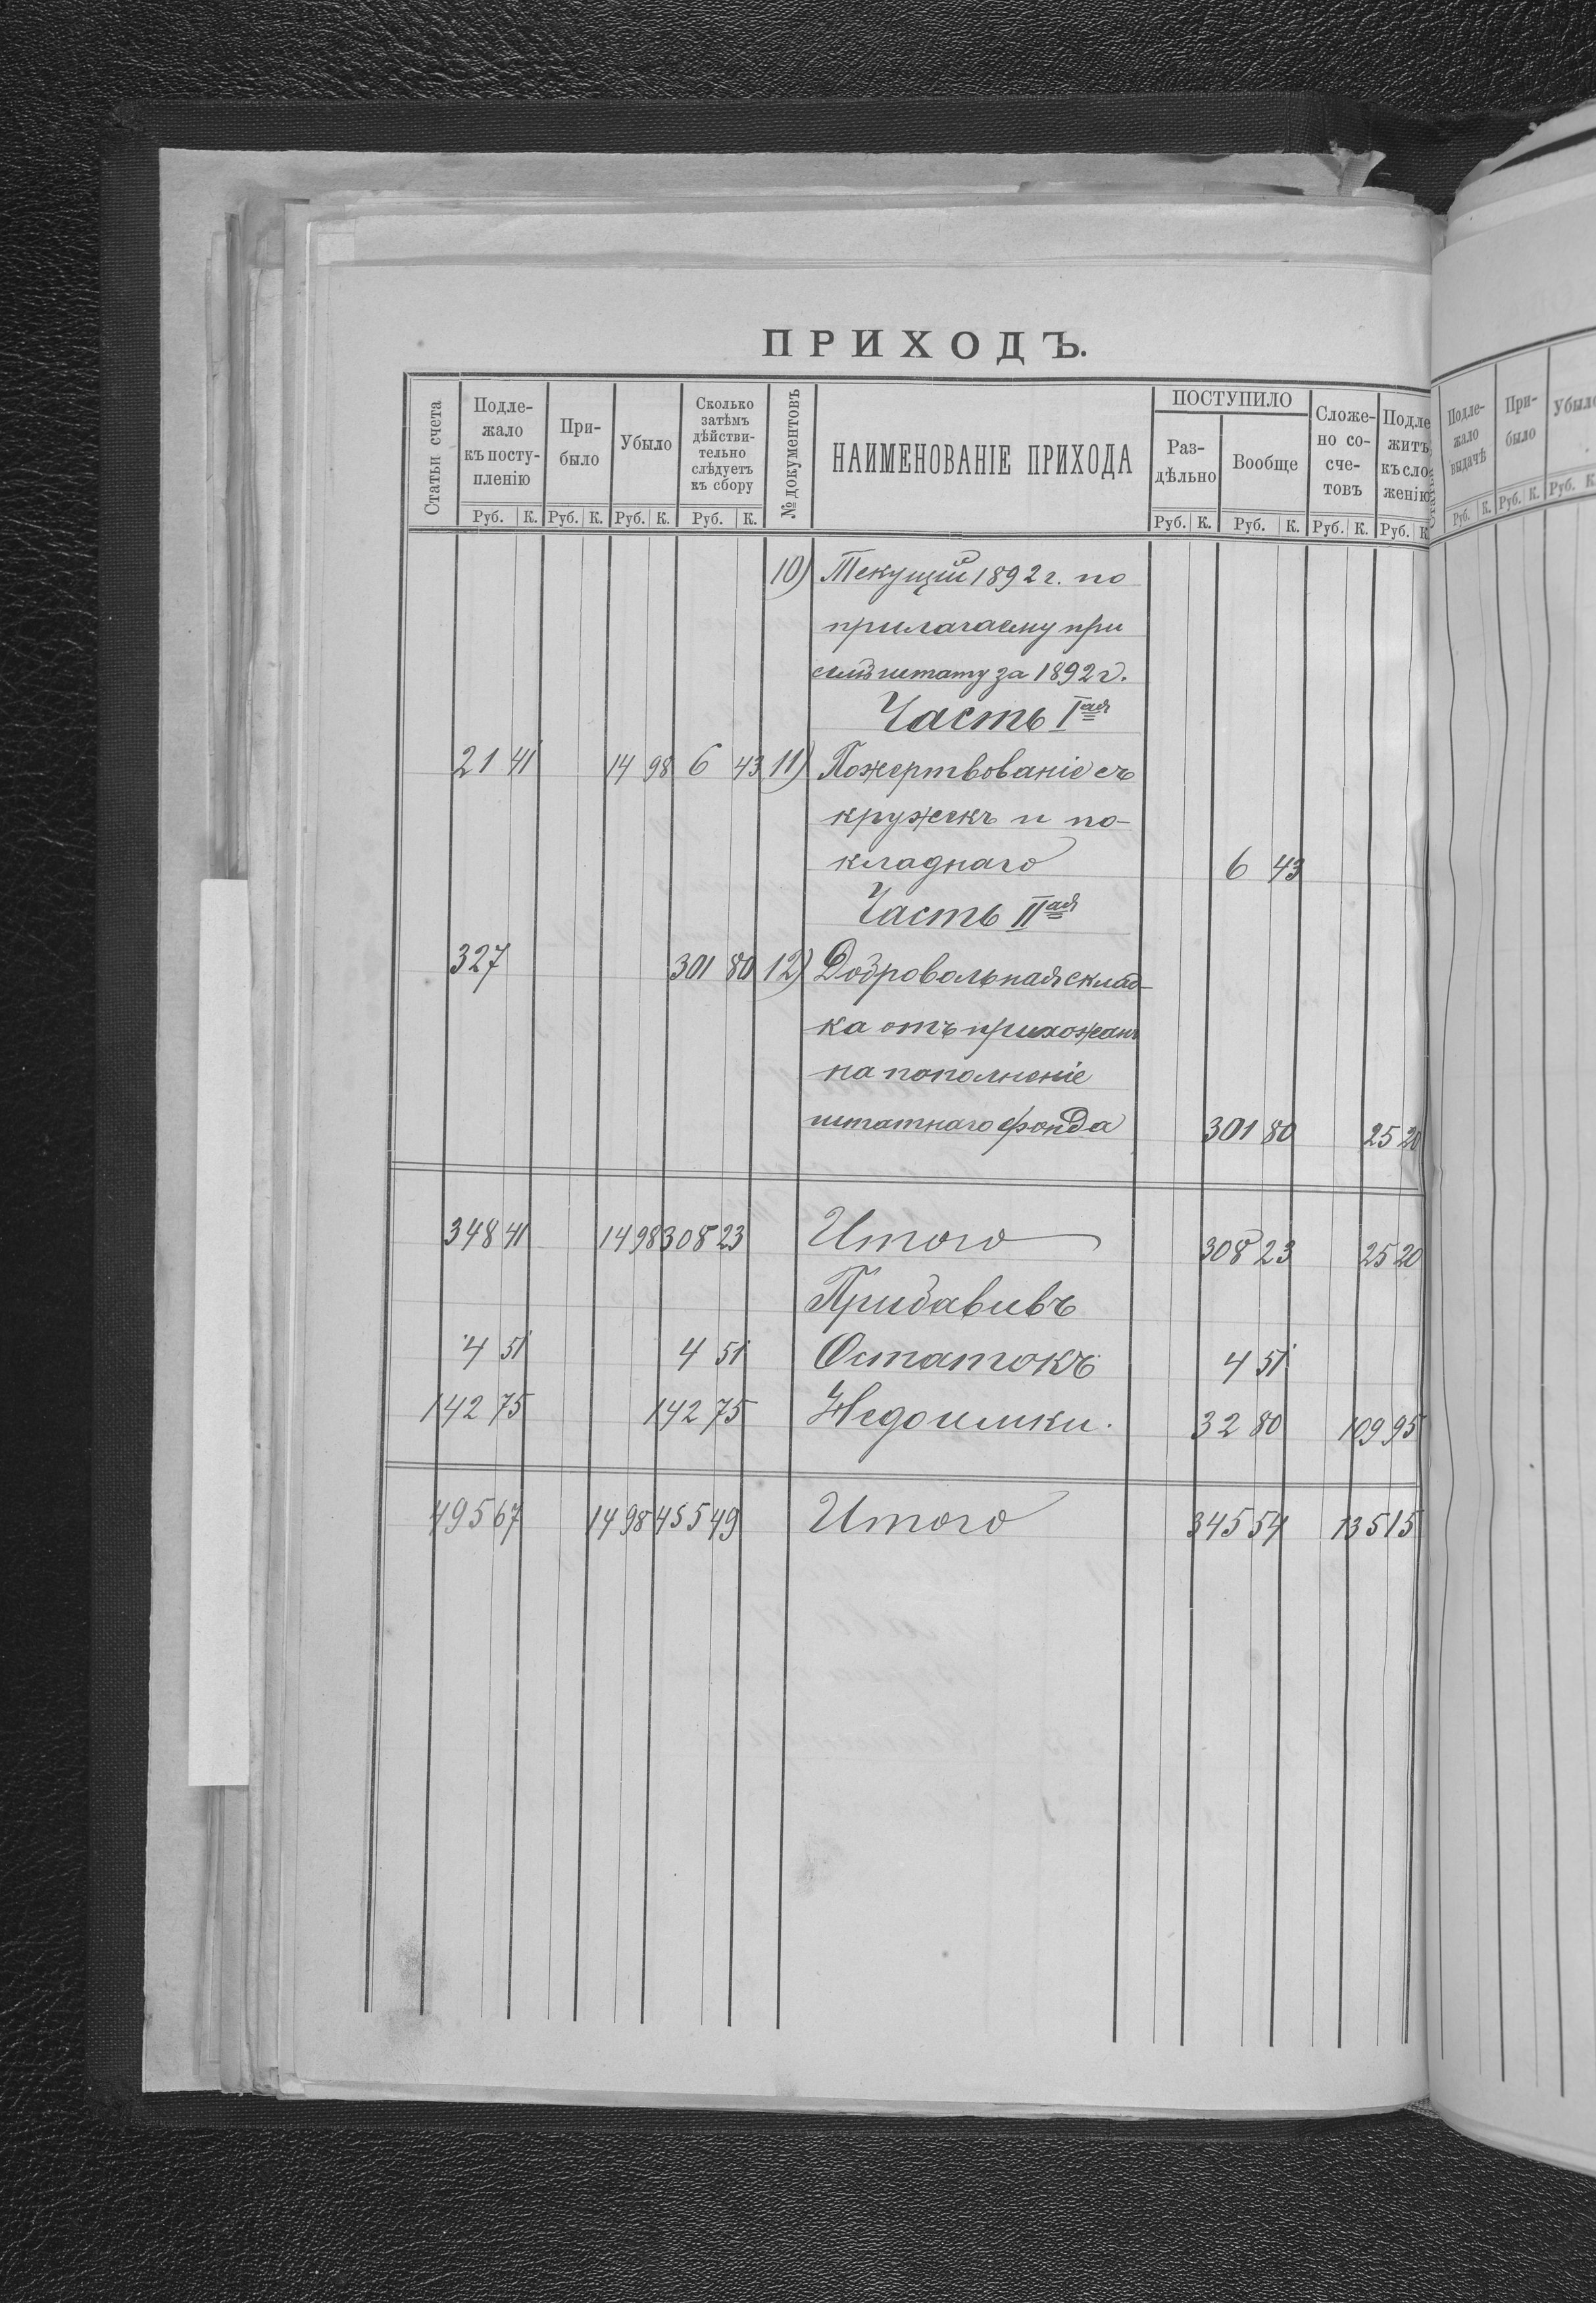 ПРИХОДЪ.
Статьи счета | Подлежало къ поступленію | Прибыло | Убыло | Сколько затѣмъ дѣйствительно слѣдуетъ къ сбору | № документовъ | НАИМЕНОВАНІЕ ПРИХОДА | ПОСТУПИЛО Раздѣльно | Вообще | Сложено со счетовъ | Подлежитъ къ сложенію
Руб. К. Руб. К. Руб. К. Руб. К. Руб. К. Руб. К. Руб. К. Руб. К
10) Текущій 1892 г. по
прилагаему при
семъ штату за 1892 г.
Часть Iая
21 41 14 98 6 43 11) Пожертвованіе съ
кружекъ и по-
кладнаго 6 43
Часть IIая
327 301 80 12) Добровольная склад-
ка отъ прихожанъ
на пополненіе
штатнаго фонда 301 80 25 20
348 41 14 98 308 23 Итого 308 23 25 20
Придавивъ
4 51 4 51 Остатокъ 4 51
142 75 142 75 Недоимки. 32 80 109 95
495 67 14 98 455 49 Итого 345 54 135 15
Подлежало выдачѣ | Прибыло | Убыло
Руб. К. Руб. К. Руб. К